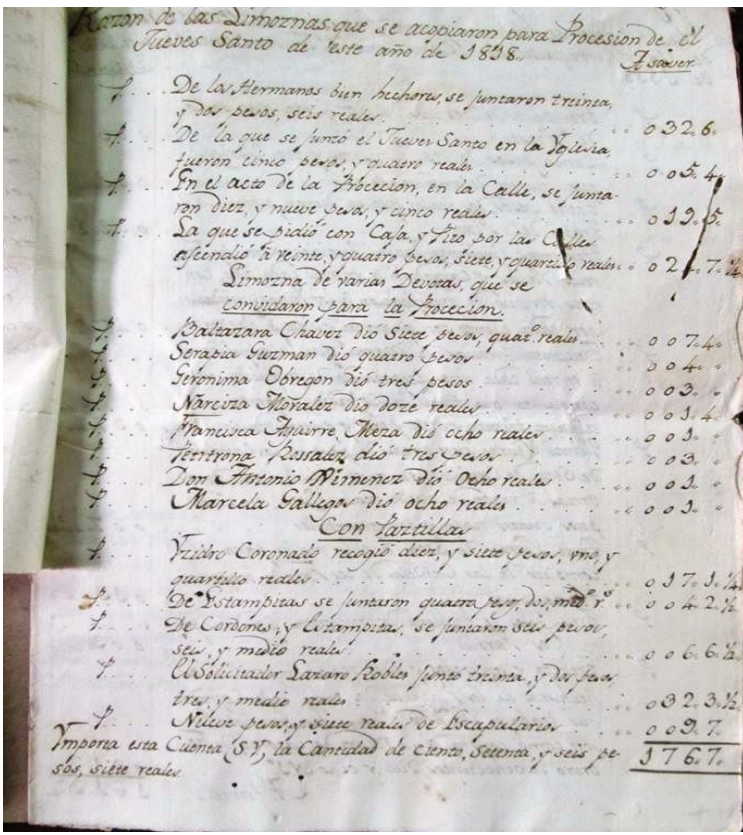 Razon de las Limoznas que se acopiaron para Procesion de el
Jueves Santo de este año de 1818.
A saver
De los Hermanos bien hechores, se juntaron treinta,
y dos pesos, seis reales . . . 032.6.
De la que se juntó el Jueves Santo en la Yglesia,
fueron cinco pesos, y quatro reales . . . 005.4.
En el acto de la Procecion, en la Calle, se junta-
ron diez, y nueve pesos, y cinco reales . . . 019.5.
La que se pidió con Caja, y Pito por las Calles
asendió à veinte, y quatro pesos, siete, y quartillo reales . . . 024.7.¼
Limozna de varias Devotas, que se
convidaron para la Procecion.
Baltazara Chavez dió Siete pesos, quat.º reales . . . 007.4.
Serapia Guzman dió quatro pesos . . . 004.
Geronima Obregon dió tres pesos . . . 003.
Narciza Moralez dio doze reales . . . 001.4.
Francisca Aguirre, Meza dió ocho reales . . . 001.
Petrona Rossalez dió tres pesos . . . 003.
Don Antonio Ximenez dió Ocho reales . . . 001.
Marcela Gallegos dió ocho reales . . . 001.
Con Paztillas
Yzidro Coronado recogió diez, y siete pesos, vno, y
quartillo reales . . . 017.1.¼
De Estampitas se juntaron quatro peso, dos, med.º r.s . . . 004.2.½
De Cordones, y Estampitas, se juntaron Seis pesos,
seis, y medio reales . . . 006.6.½
El Solicitador Lazaro Robles junto treinta, y dos pesos
tres, y medio reales . . . 032.3.½
Nueve pesos, y siete reales de Escapularios . . . 009.7.
Ymporta esta Cuenta (S.Y.) la Cantidad de Ciento, Setenta, y seis pe- 176 7.
sos, siete reales.